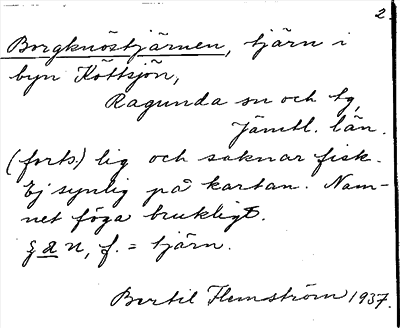 2.
Borgknöstjärnen, tjärn i
byn Köttsjön,
Ragunda sn och tg,
Jämtl. län.
(forts.) lig och saknar fisk.
Ej synlig på kartan. Nam-
net föga brukligt.
n, f. = tjärn.
Bertil Flemström 1937.